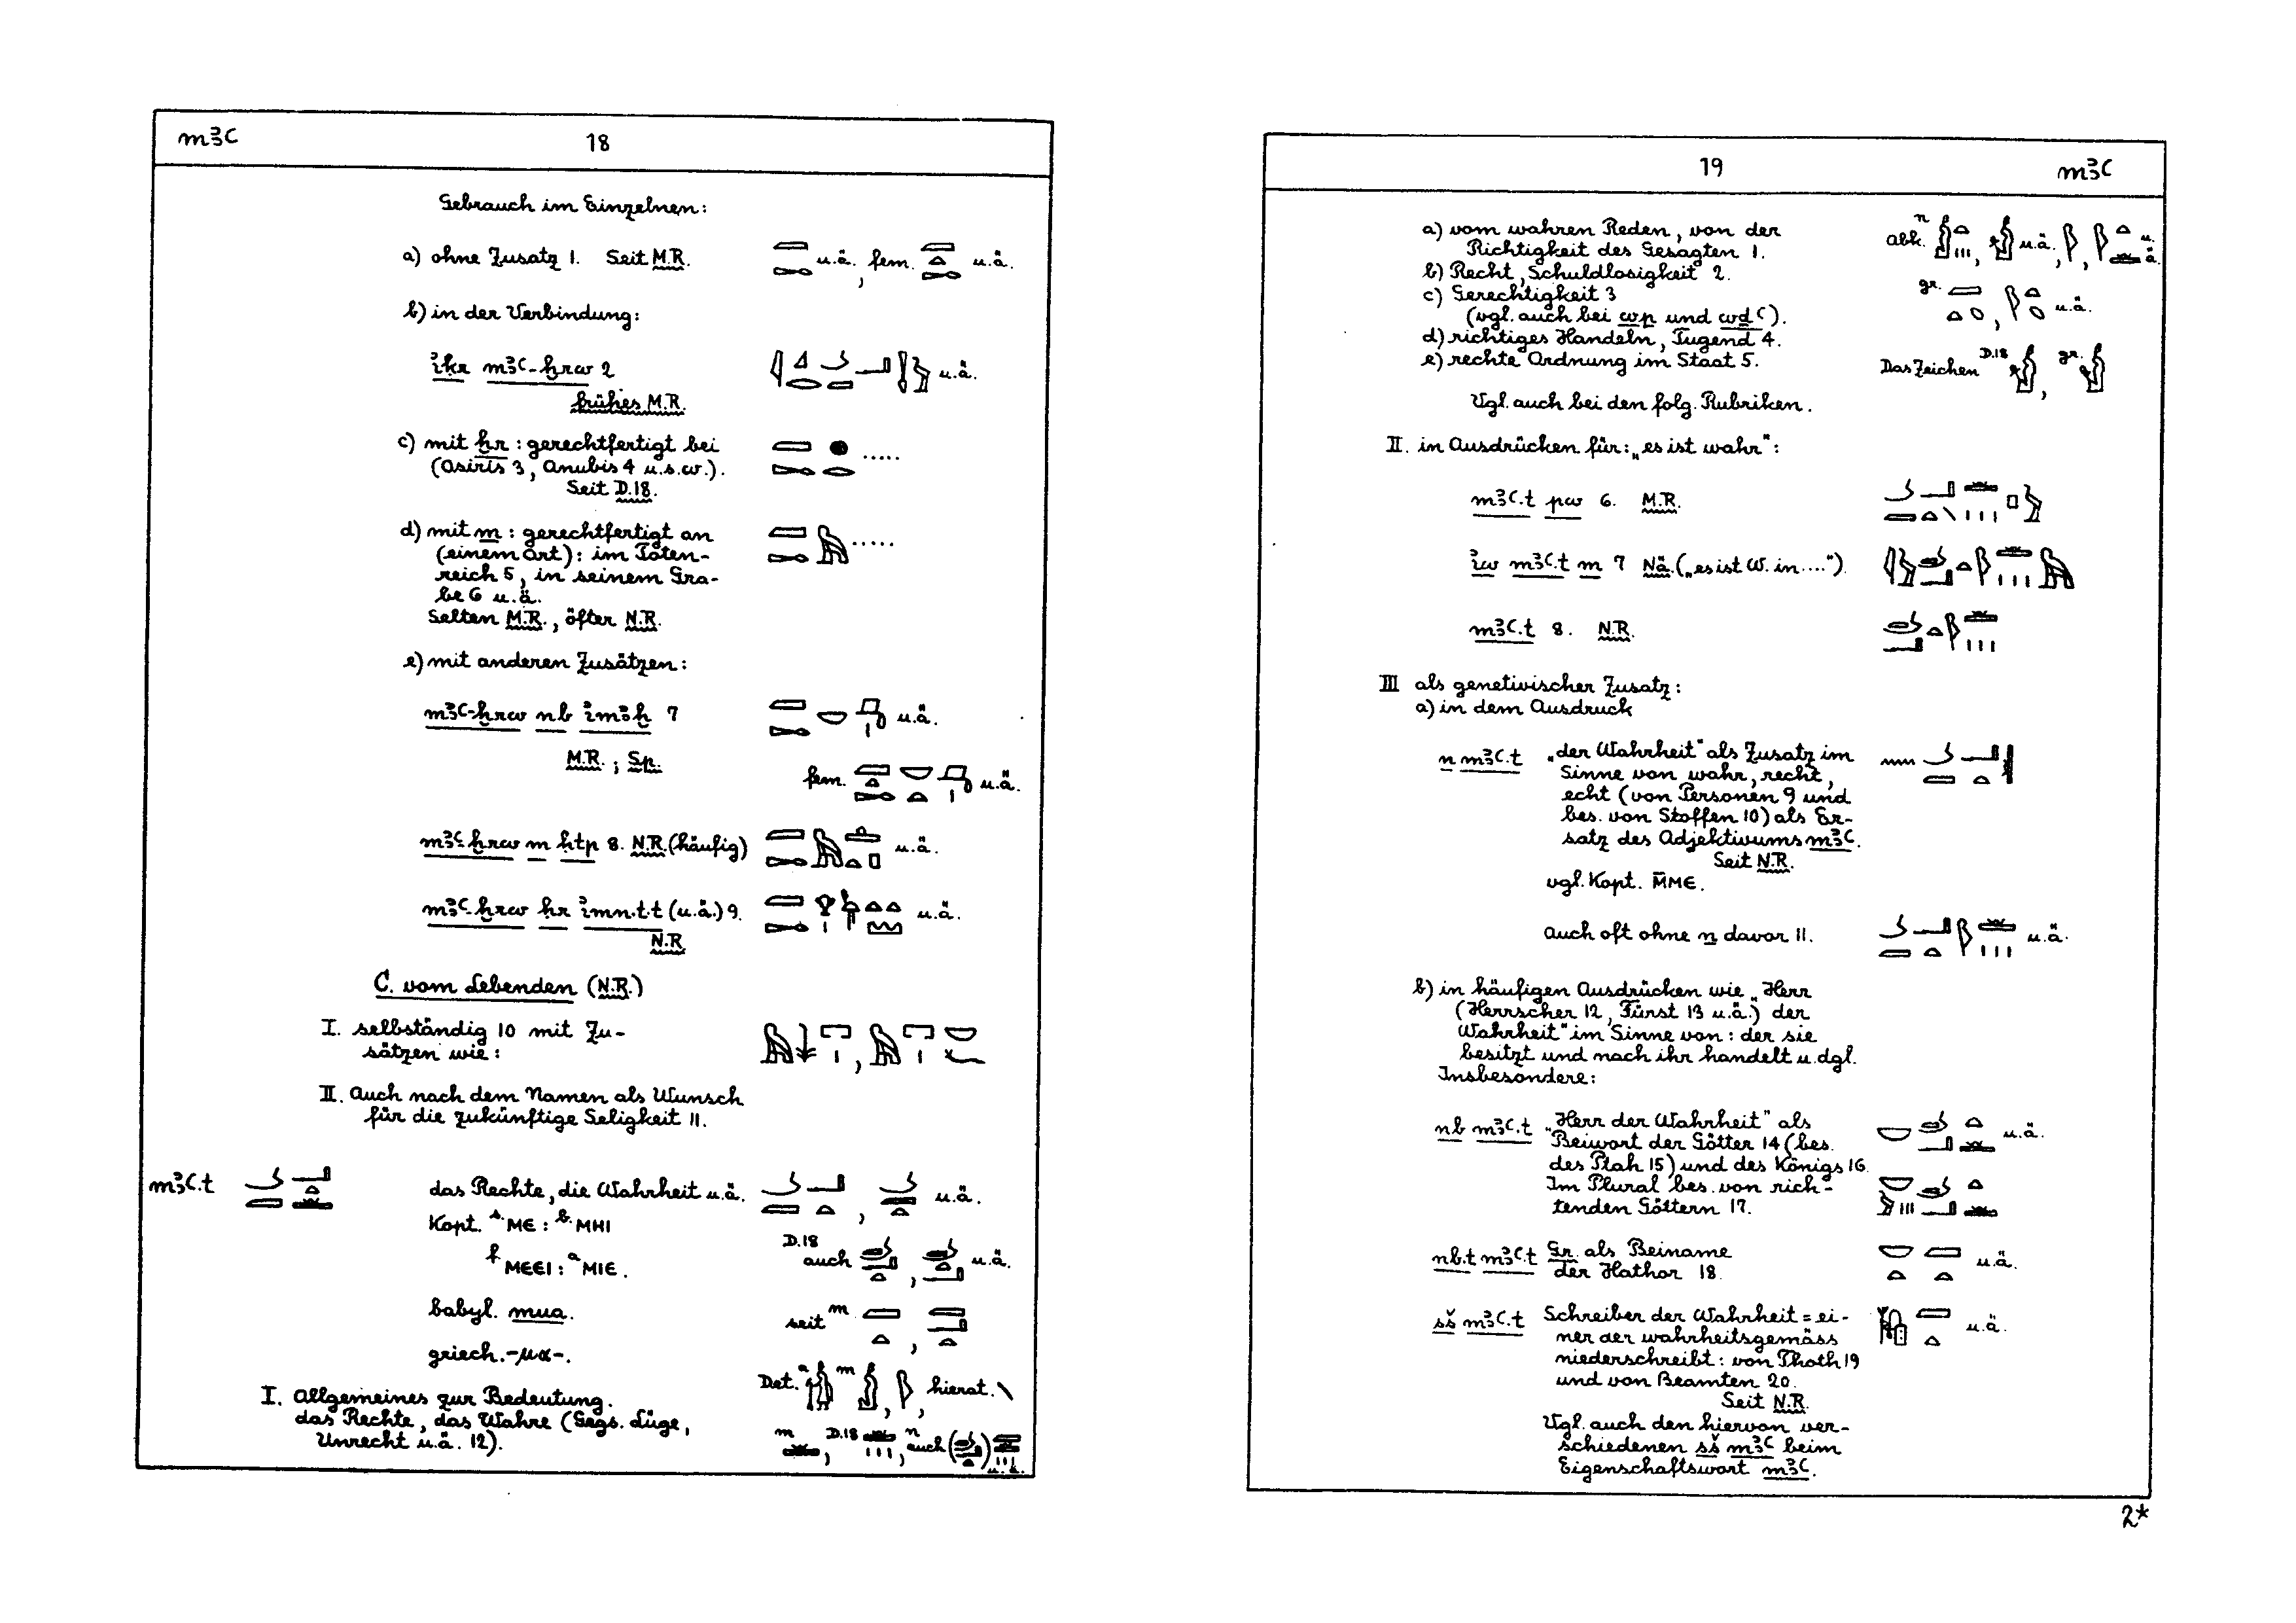 mꜣꜥ 18
Gebrauch im Einzelnen:
a) ohne Zusatz 1. Seit M.R. u.ä., fem. u.ä.
b) in der Verbindung:
iḳr mꜣꜥ-ḫrw 2 u.ä.
frühes M.R.
c) mit ḫr : gerechtfertigt bei .....
(Osiris 3, Anubis 4 u.s.w.).
Seit D.18.
d) mit m : gerechtfertigt an .....
(einem Ort): im Toten-
reich 5, in seinem Gra-
be 6 u.ä.
Selten M.R., öfter N.R.
e) mit anderen Zusätzen:
mꜣꜥ-ḫrw nb imꜣḫ 7 u.ä.
M.R. ; Sp. fem. u.ä.
mꜣꜥ-ḫrw m ḥtp 8. N.R. (häufig) u.ä.
mꜣꜥ-ḫrw ḥr imn.t.t (u.ä.) 9. u.ä.
N.R.
C. vom Lebenden (N.R.)
I. selbständig 10 mit Zu-
sätzen wie: ,
II. Auch nach dem Namen als Wunsch
für die zukünftige Seligkeit 11.
mꜣꜥ.t das Rechte, die Wahrheit u.ä. , u.ä.
Kopt. s. ⲘⲈ : b. ⲘⲎⲒ
D.18 auch , u.ä.
f ⲘⲈⲈⲒ : a ⲘⲒⲈ.
babyl. mua. seit m ,
griech. -μα-.
Det. a m , , hierat.
I. Allgemeines zur Bedeutung.
das Rechte, das Wahre (Gegs. Lüge,
Unrecht u.ä. 12). m , D.18 , n auch ( ) u.ä.
19 mꜣꜥ
a) vom wahren Reden, von der abk. n , u.ä., , u.ä.
Richtigkeit des Gesagten 1.
b) Recht, Schuldlosigkeit 2.
c) Gerechtigkeit 3 gr. , u.ä.
(vgl. auch bei wp und wḏꜥ).
d) richtiges Handeln, Tugend 4.
e) rechte Ordnung im Staat 5. Das Zeichen D.18 , gr.
Vgl. auch bei den folg. Rubriken.
II. in Ausdrücken für: „es ist wahr":
mꜣꜥ.t pw 6. M.R.
iw mꜣꜥ.t m 7 Nä. („es ist W. in ....").
mꜣꜥ.t 8. N.R.
III als genetivischer Zusatz:
a) in dem Ausdruck
n mꜣꜥ.t „der Wahrheit" als Zusatz im
Sinne von wahr, recht,
echt (von Personen 9 und
bes. von Stoffen 10) als Er-
satz des Adjektivums mꜣꜥ.
Seit N.R.
vgl. Kopt. Ⲙ̄ⲘⲈ.
Auch oft ohne n davor 11. u.ä.
b) in häufigen Ausdrücken wie „Herr
(Herrscher 12, Fürst 13 u.ä.) der
Wahrheit" im Sinne von: der sie
besitzt und nach ihr handelt u.dgl.
Insbesondere:
nb mꜣꜥ.t „Herr der Wahrheit" als
Beiwort der Götter 14 (bes. u.ä.
des Ptah 15) und des Königs 16.
Im Plural bes. von rich-
tenden Göttern 17.
nb.t mꜣꜥ.t Gr. als Beiname
der Hathor 18. u.ä.
sš mꜣꜥ.t Schreiber der Wahrheit = ei-
ner der wahrheitsgemäss u.ä.
niederschreibt: von Thoth 19
und von Beamten 20.
Seit N.R.
Vgl. auch den hiervon ver-
schiedenen sš mꜣꜥ beim
Eigenschaftswort mꜣꜥ.
2*